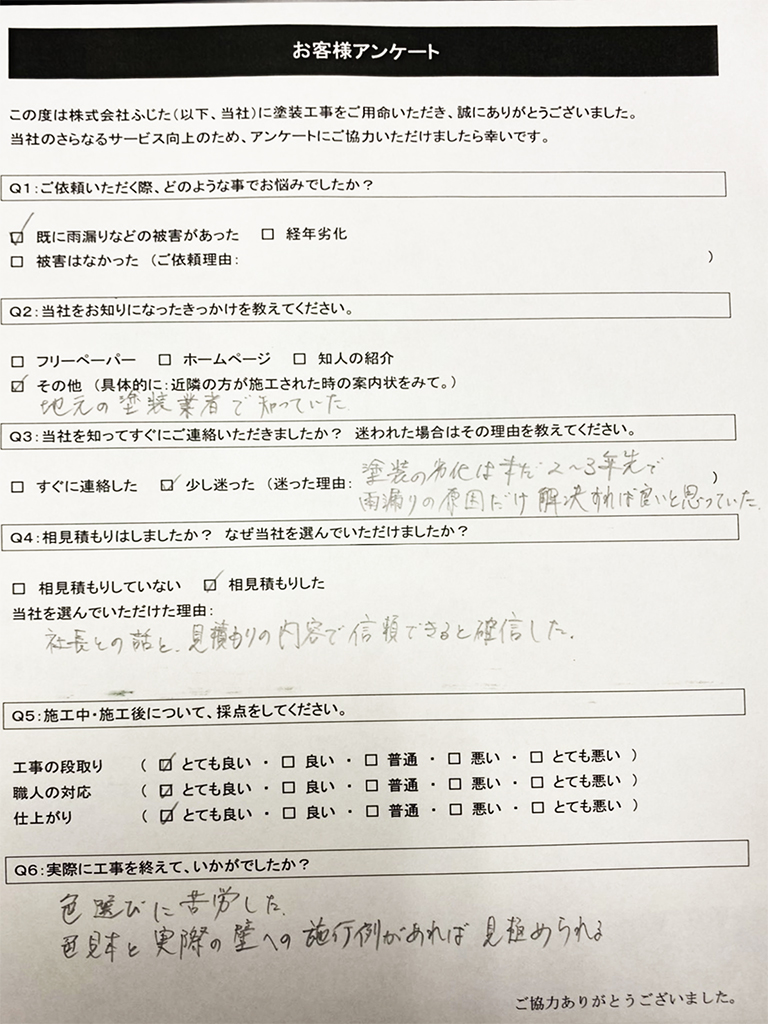 お客様アンケート
この度は株式会社ふじた(以下、当社)に塗装工事をご用命いただき、誠にありがとうございました。
当社のさらなるサービス向上のため、アンケートにご協力いただけましたら幸いです。
Q1:ご依頼いただく際、どのような事でお悩みでしたか?
☑ 既に雨漏りなどの被害があった □ 経年劣化
□ 被害はなかった (ご依頼理由: )
Q2:当社をお知りになったきっかけを教えてください。
□ フリーペーパー □ ホームページ □ 知人の紹介
☑ その他 (具体的に:近隣の方が施工された時の案内状をみて。)
地元の塗装業者で知っていた
Q3:当社を知ってすぐにご連絡いただきましたか? 迷われた場合はその理由を教えてください。
□ すぐに連絡した ☑ 少し迷った (迷った理由: 塗装の劣化はまだ2~3年先で )
雨漏りの原因だけ解決すれば良いと思っていた.
Q4:相見積もりはしましたか? なぜ当社を選んでいただけましたか?
□ 相見積もりしていない ☑ 相見積もりした
当社を選んでいただけた理由:
社長との話と、見積もりの内容で信頼できると確信した.
Q5:施工中・施工後について、採点をしてください。
工事の段取り ( ☑ とても良い ・ □ 良い ・ □ 普通 ・ □ 悪い ・ □ とても悪い )
職人の対応 ( ☑ とても良い ・ □ 良い ・ □ 普通 ・ □ 悪い ・ □ とても悪い )
仕上がり ( ☑ とても良い ・ □ 良い ・ □ 普通 ・ □ 悪い ・ □ とても悪い )
Q6:実際に工事を終えて、いかがでしたか?
色選びに苦労した.
色見本と実際の壁への施行例があれば見極められる
ご協力ありがとうございました。